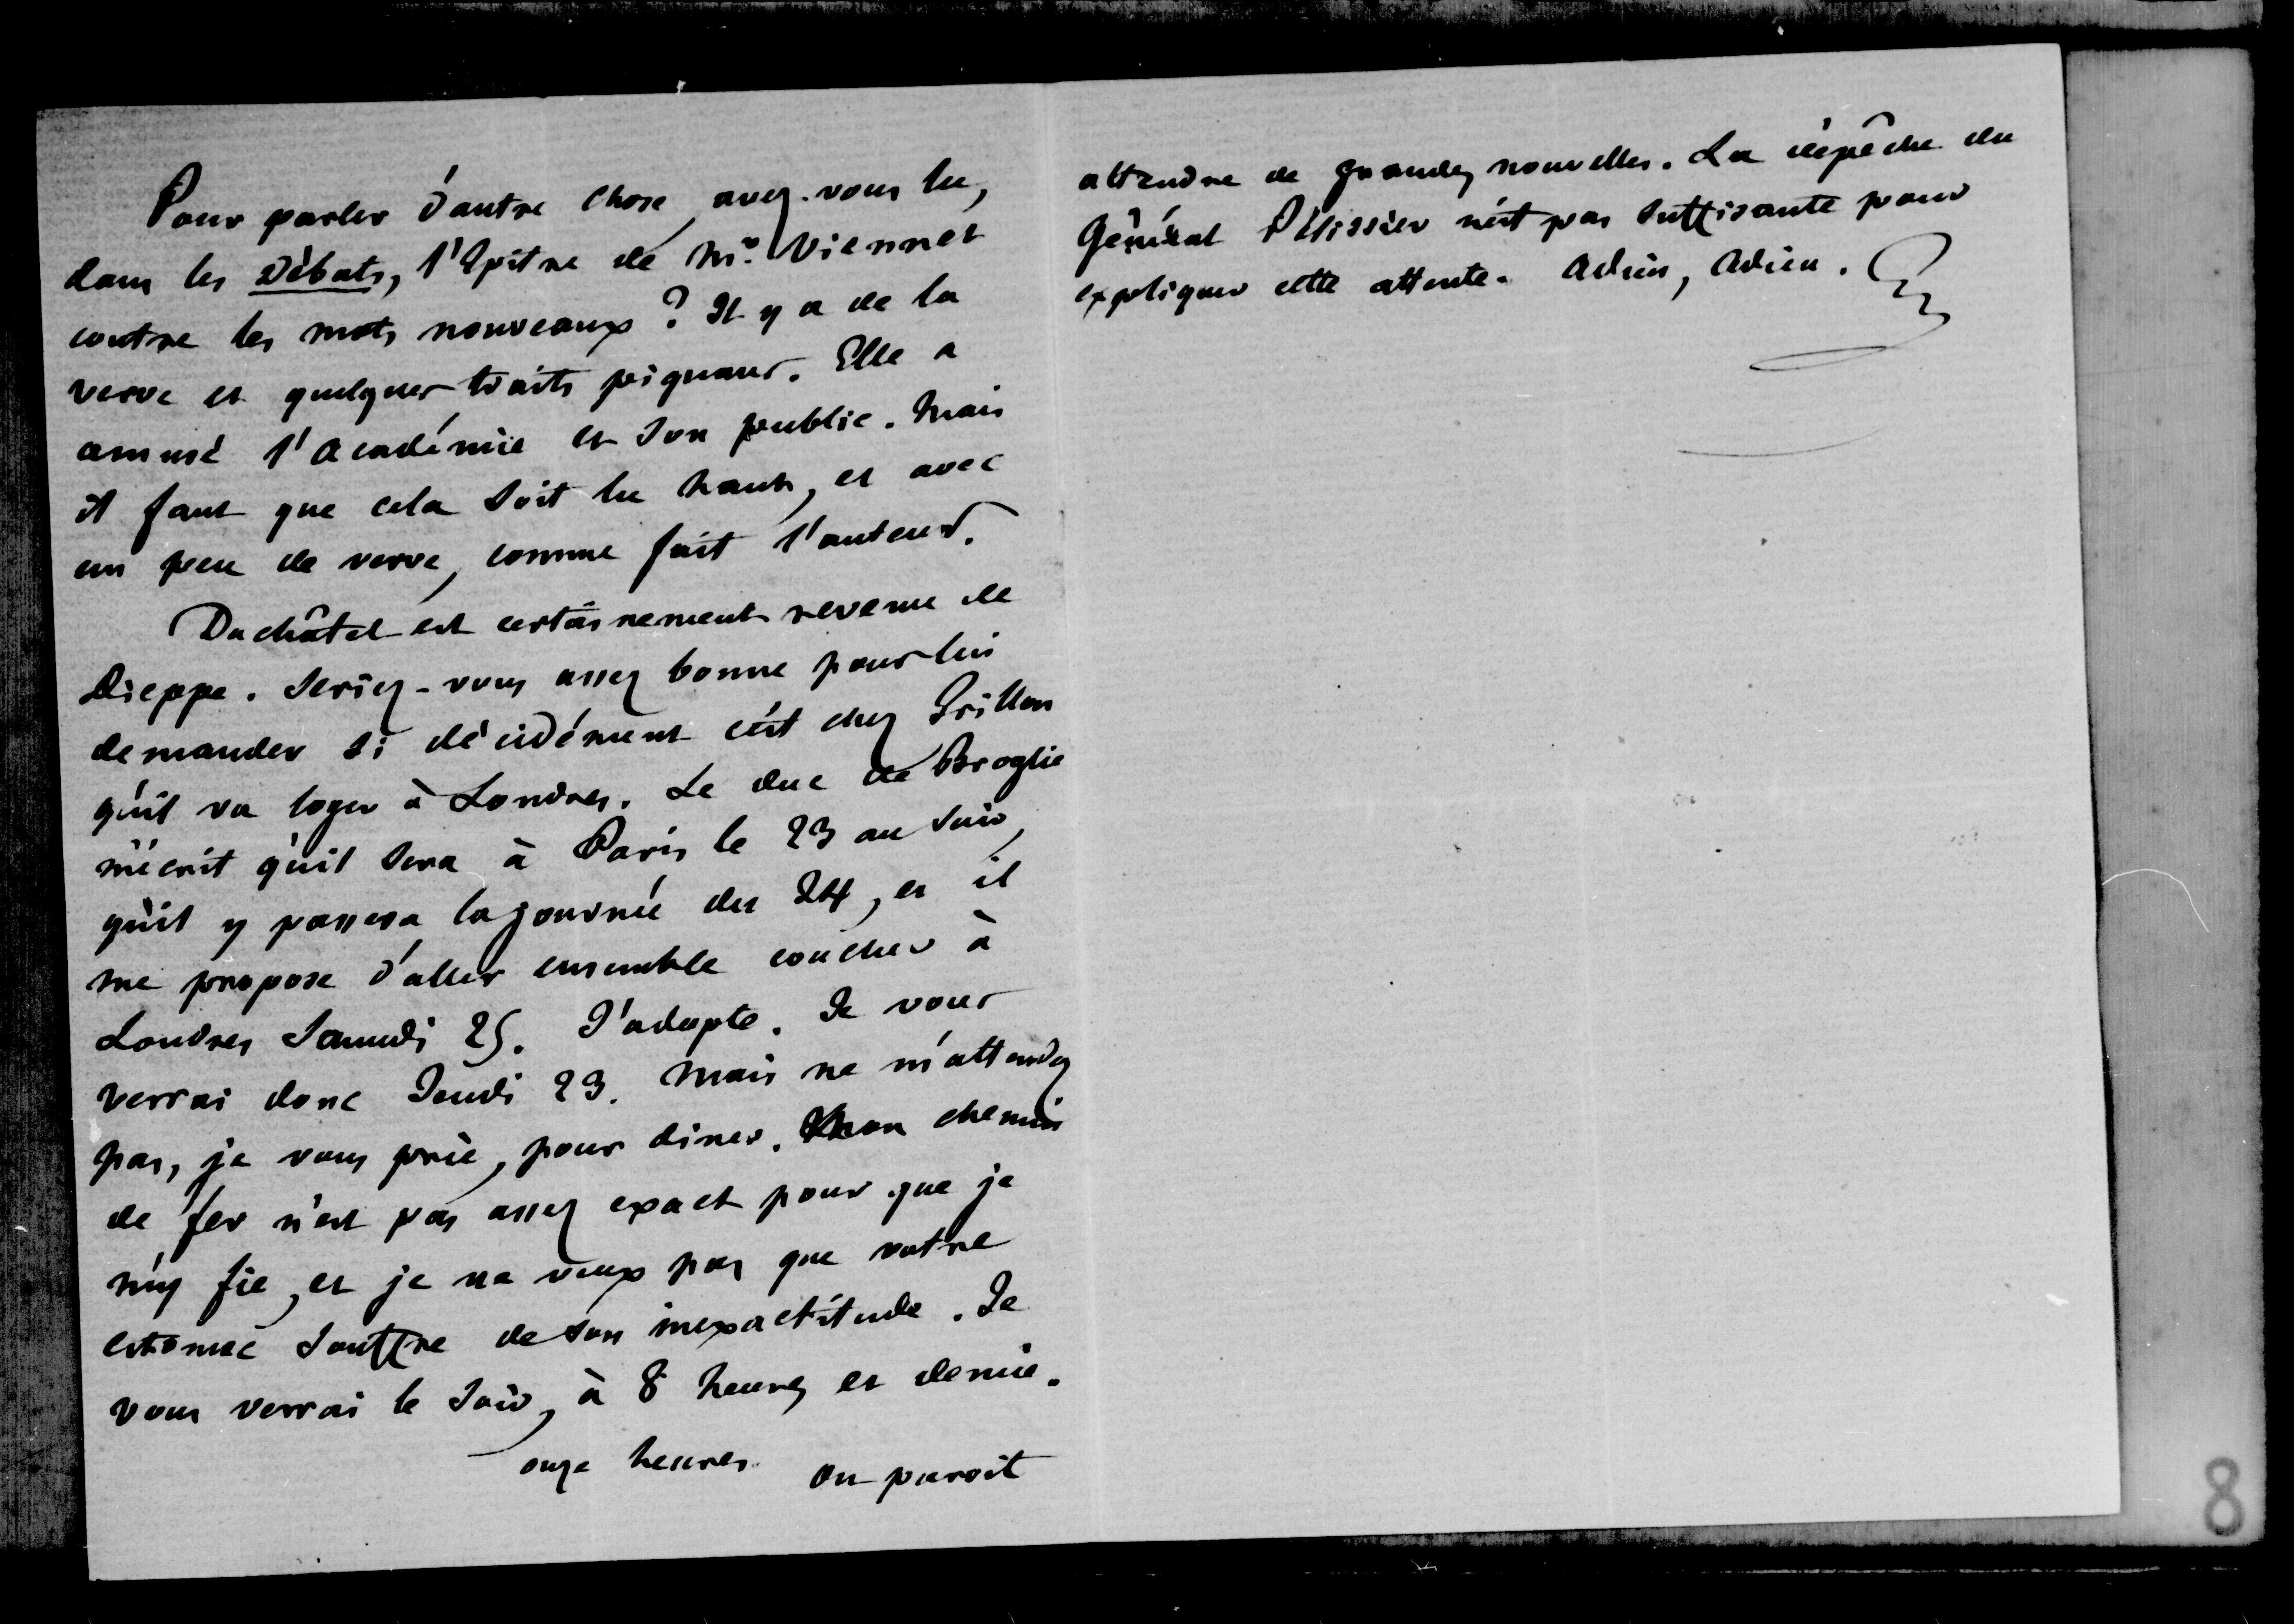 Pour parler d'autre chose, avez-vous lu,
dans les Débats, l'Epitre de Mr. Viennet
contre les mots nouveaux ? Il y a de la
verve et quelques traits piquans. Elle a
amusé l'Académie et son public. Mais
il faut que cela soit lu haut, et avec
un peu de verve, comme fait l'auteur.
Duchâtel est certainement revenu de
Dieppe. Seriez-vous assez bonne pour lui
demander si décidément c'est chez Grillon
qu'il va loger à Londres. Le duc de Broglie
m'écrit qu'il sera à Paris le 23 au soir,
qu'il y passera la journée du 24, et il
me propose d'aller ensemble coucher à
Londres Samedi 25. J'adopte. Je vous
verrai donc Jeudi 23. Mais ne m'attendez
pas, je vous prie, pour diner. Mon chemin
de fer n'est pas assez exact pour que je
m'y fie, et je ne veux pas que votre
estomac souffre de son inexactitude. Je
vous verrai le soir, à 8 heures et demie.
onze heures. On paroit
attendre de grandes nouvelles. La dépêche du
Général Pélissier n'est pas suffisante pour
expliquer cette attente. Adieu, Adieu.
8